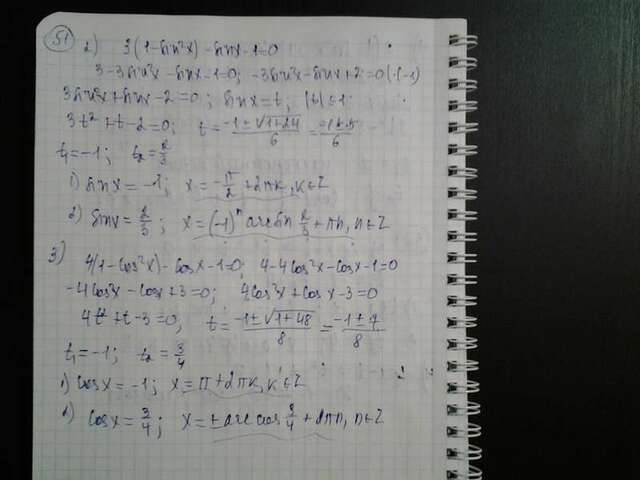 51
2) 3(1-sin²x)-sinx-1=0
3-3sin²x-sinx-1=0; -3sin²x-sinx+2=0|·(-1)
3sin²x+sinx-2=0; sinx=t, |t|≤1
3t²+t-2=0; t=(-1±√(1+24))/6=(-1±5)/6
t₁=-1; t₂=2/3
1) sinx=-1; x=-π/2+2πk, k∈Z
2) sinx=2/3; x=(-1)ⁿ arcsin 2/3+πn, n∈Z
3)
4(1-cos²x)-cosx-1=0; 4-4cos²x-cosx-1=0
-4cos²x-cosx+3=0; 4cos²x+cosx-3=0
4t²+t-3=0; t=(-1±√(1+48))/8=(-1±7)/8
t₁=-1; t₂=3/4
1) cosx=-1; x=π+2πk, k∈Z
2) cosx=3/4; x=±arccos 3/4+2πn, n∈Z